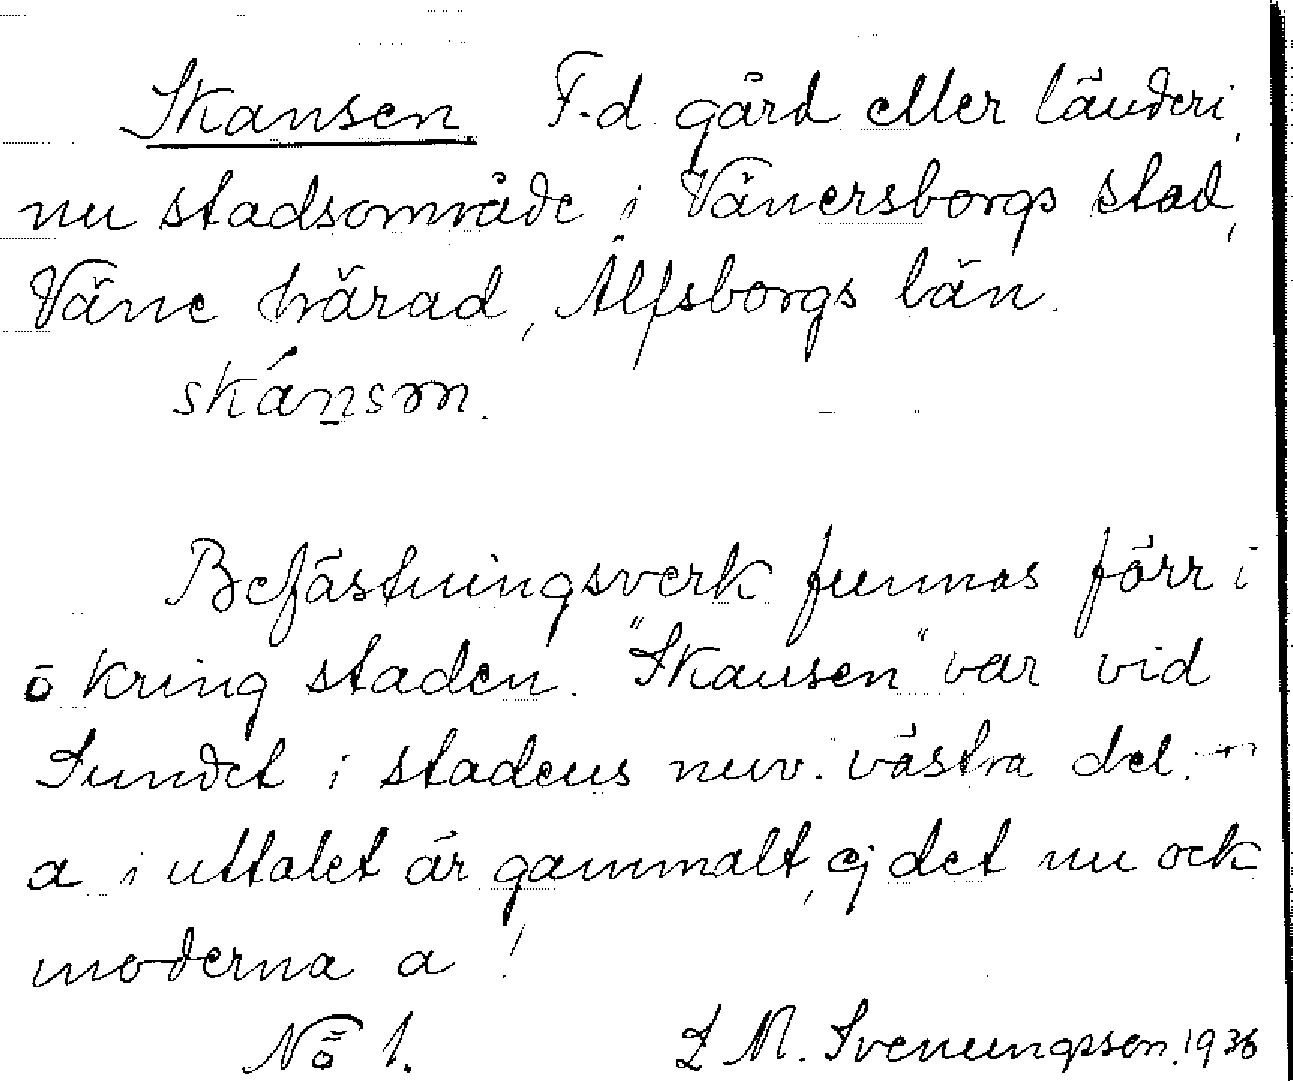 Skansen. F.d. gård eller länderi,
nu stadsområde i Vänersborgs stad,
Väne härad, Älfsborgs län.
skánsm.
Befästningsverk funnos förr i
o kring staden. "Skansen" var vid
Sundet i stadens nuv. västra del. —
a i uttalet är gammalt, ej det nu ock
moderna a!
No 1.
L M. Svenungsson. 1936